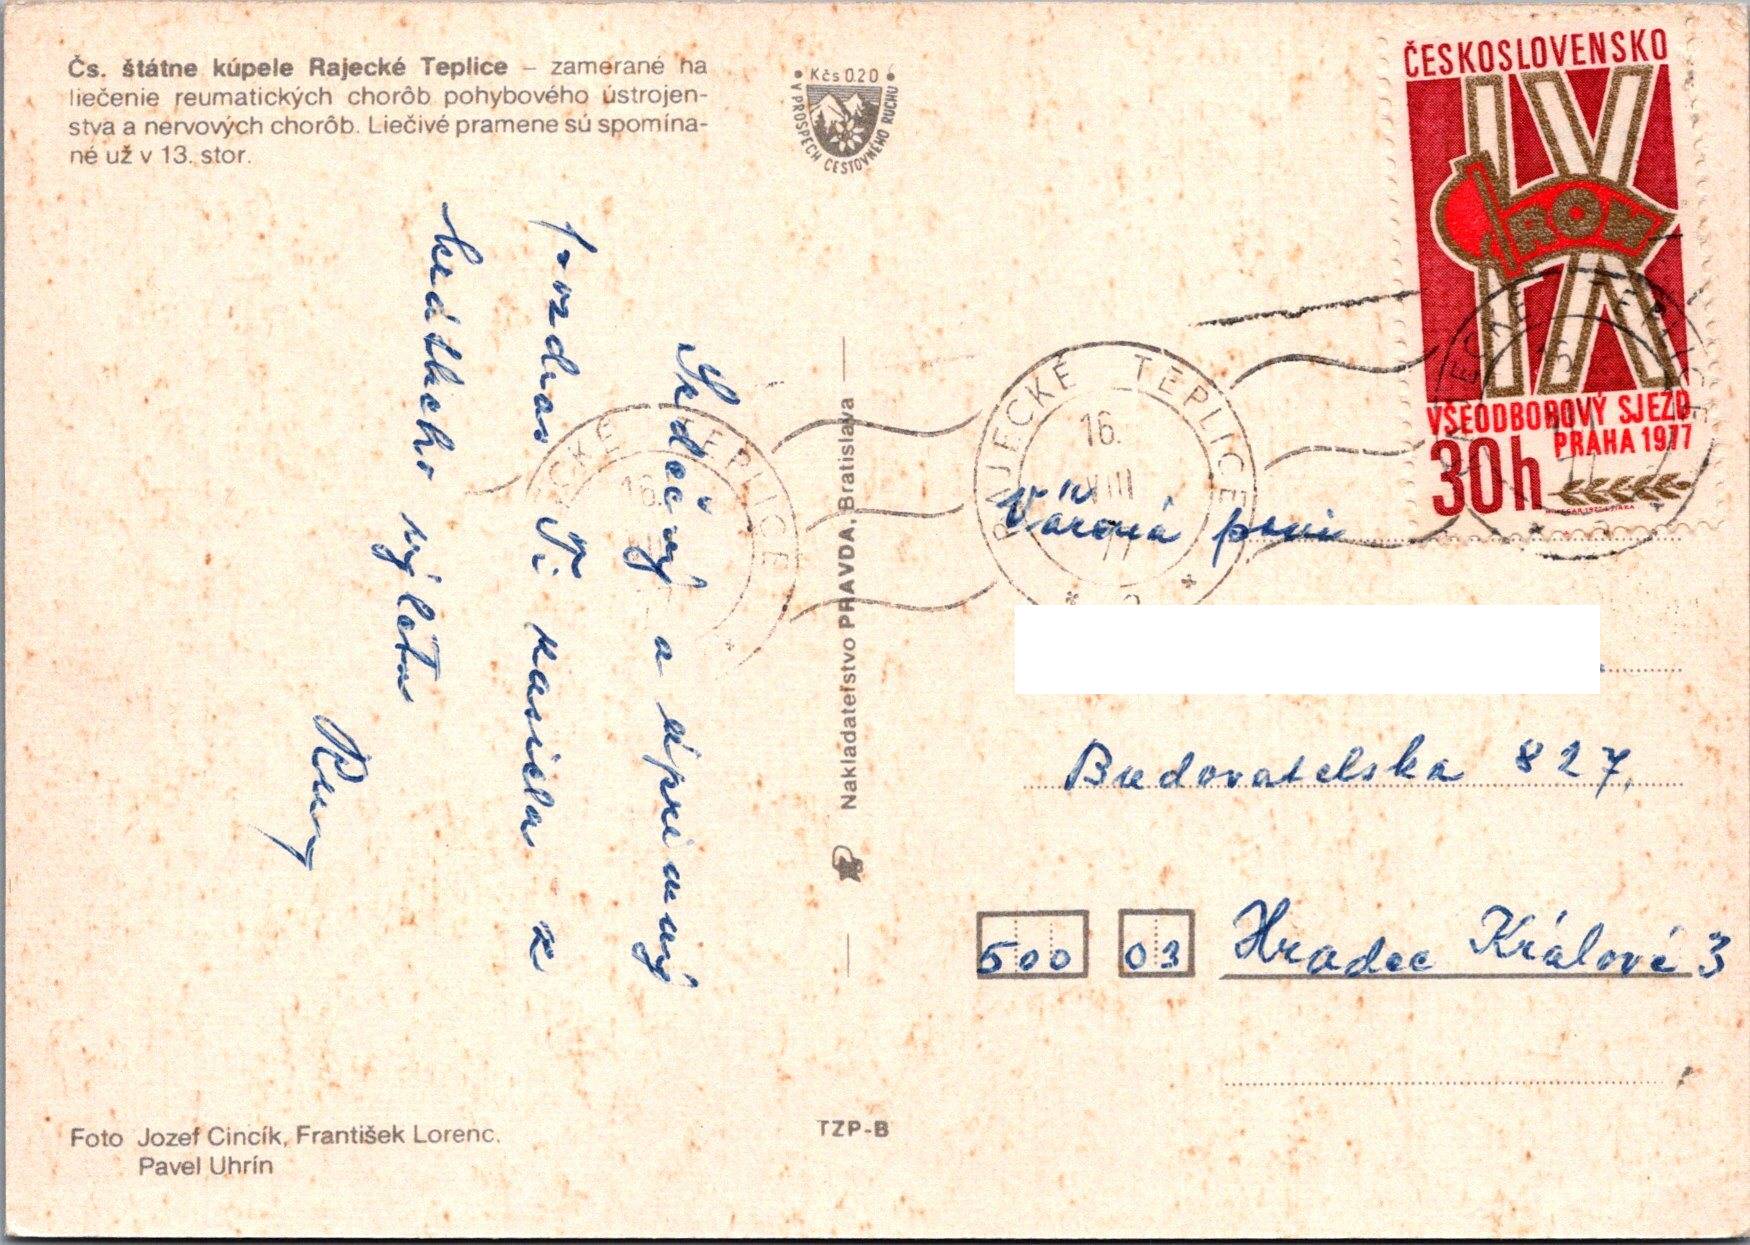 Čs. štátne kúpele Rajecké Teplice – zamerané na
liečenie reumatických chorôb pohybového ústrojen-
stva a nervových chorôb. Liečivé pramene sú spomína-
né už v 13. stor.
• Kčs 0.20 •
V PROSPECH CESTOVNÉHO RUCHU
ČESKOSLOVENSKO
IX
ROH
VŠEODBOROVÝ SJEZD
PRAHA 1977
30h
RAJECKÉ TEPLICE
16.
VIII
77
Srdečný a úprimný
pozdrav Ti zasiela z
krátkeho výletu
Nakladateľstvo PRAVDA, Bratislava
Vážená pani
Budovatelska 827,
500 03 Hradec Králové 3
Foto Jozef Cincík, František Lorenc,
Pavel Uhrín
TZP-B